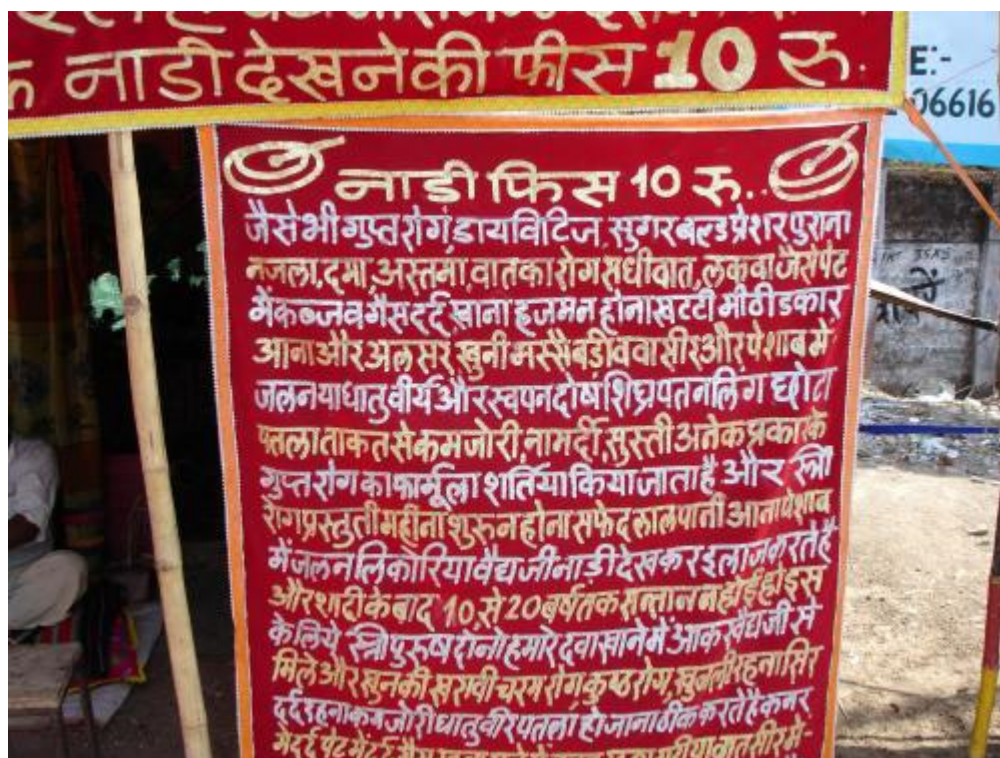 क नाडी देखने की फीस 10 रु.
E:-
06616
नाडी फिस 10 रु..
जैसे भी गुप्त रोग डायविटिज, सुगर बल्ड प्रेशर पुराना
नजला, दमा, अस्तमा, वात का रोग सधीवात, लकवा जैसे पेट
में कब्ज व गैस दर्द खाना हजम न होना खटटी मीठी डकार
आना और अलसर, खुनी मस्सै बडी ववासीर और पेशाब में
जलन या धातु वीर्य और स्वपन दोष शिघ्रपतन लिंग छोटा
पतला ताकत से कमजोरी, नामर्दी, सुस्ती अनेक प्रकार के
गुप्त रोग का फार्मूला शर्तिया किया जाता है और स्त्री
रोग प्रस्तुती महीना शुरु न होना सफेद लाल पानी आना पेशाब
में जलन लिकोरिया वैद्य जी नाडी देखकर इलाज करते है
और शादी के बाद 10, से 20 बर्ष तक सन्तान नही हुई हो इस
के लिये स्त्री पुरुष दोनो हमारे दवाखाने में आकर वैद्य जी से
मिले और खुन की खरावी चरम रोग, कुष्ठ रोग, खुजली रहना सिर
दर्द रहना कमजोरी धातु वीर पतला हो जाना ठीक करते है कमर
मे दर्द पेट मे दर्द